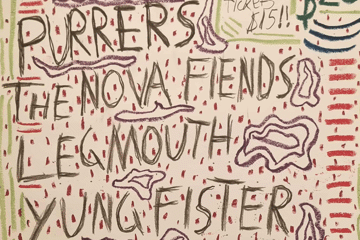 TICKETS
PURRERS $15!!
THE NOVA FIENDS
LEGMOUTH
YUNG FISTER